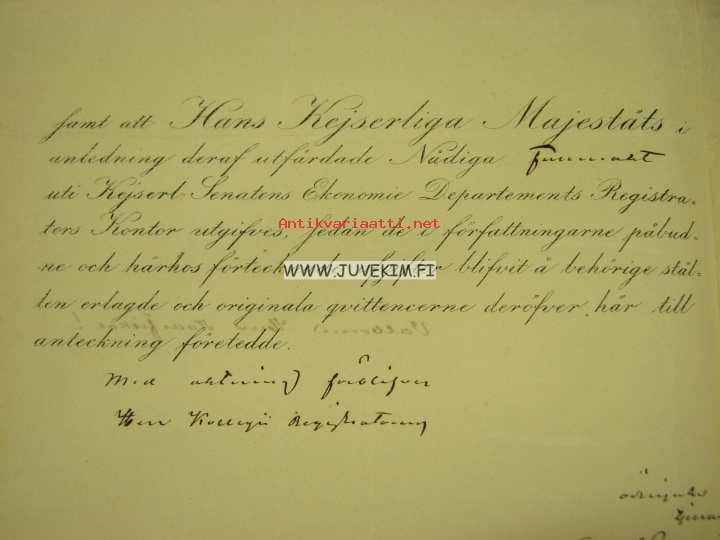 samt att Hans Kejserliga Majestäts i
anledning deraf utfärdade Nådiga fullmakt
uti Kejserl. Senatens Ekonomie Departements Registra-
tors Kontor utgifves, sedan de i författningarne påbud-
ne och härhos förteck afgifter blifvit å behörige stäl-
len erlagde och originala qvittencerne deröfver här till
anteckning företedde.
Med aktning förblifver
Herr Kollegii Registratorns
ödmjuke
tjenare
Antikvariaatti.net
WWW.JUVEKIM.FI